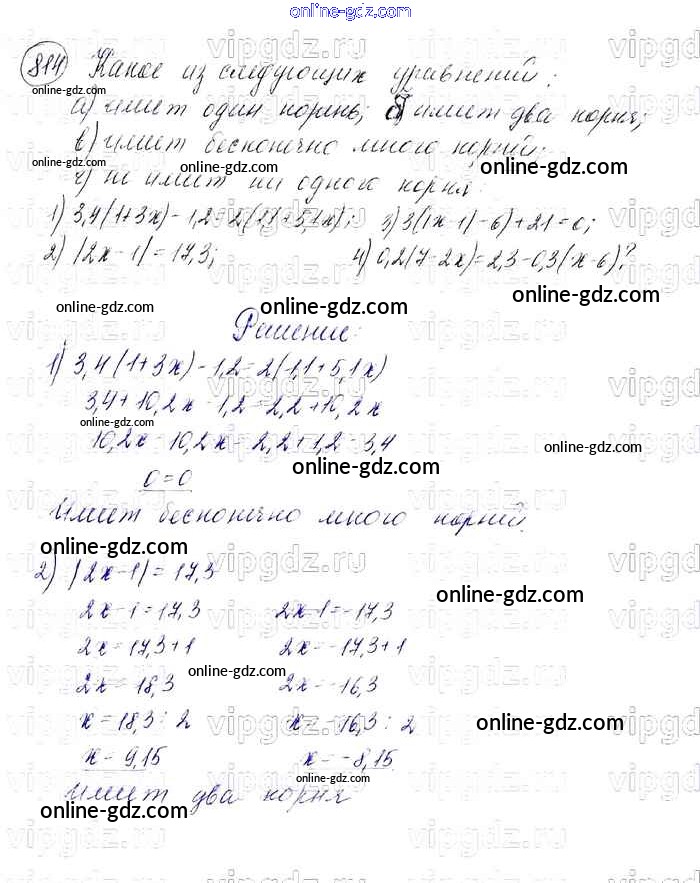 online-gdz.com
814 Какое из следующих уравнений:
а) имеет один корень; б) имеет два корня;
в) имеет бесконечно много корней;
г) не имеет ни одного корня:
1) 3,4(1+3x)-1,2=2(1,1+5,1x); 3) 3(|x-1|-6)+21=0;
2) |2x-1|=17,3; 4) 0,2(7-2x)=2,3-0,3(x-6)?
Решение:
1) 3,4(1+3x)-1,2=2(1,1+5,1x)
3,4+10,2x-1,2=2,2+10,2x
10,2x-10,2x=2,2+1,2-3,4
0=0
Имеет бесконечно много корней.
2) |2x-1|=17,3
2x-1=17,3 2x-1=-17,3
2x=17,3+1 2x=-17,3+1
2x=18,3 2x=-16,3
x=18,3:2 x=-16,3:2
x=9,15 x=-8,15
Имеет два корня